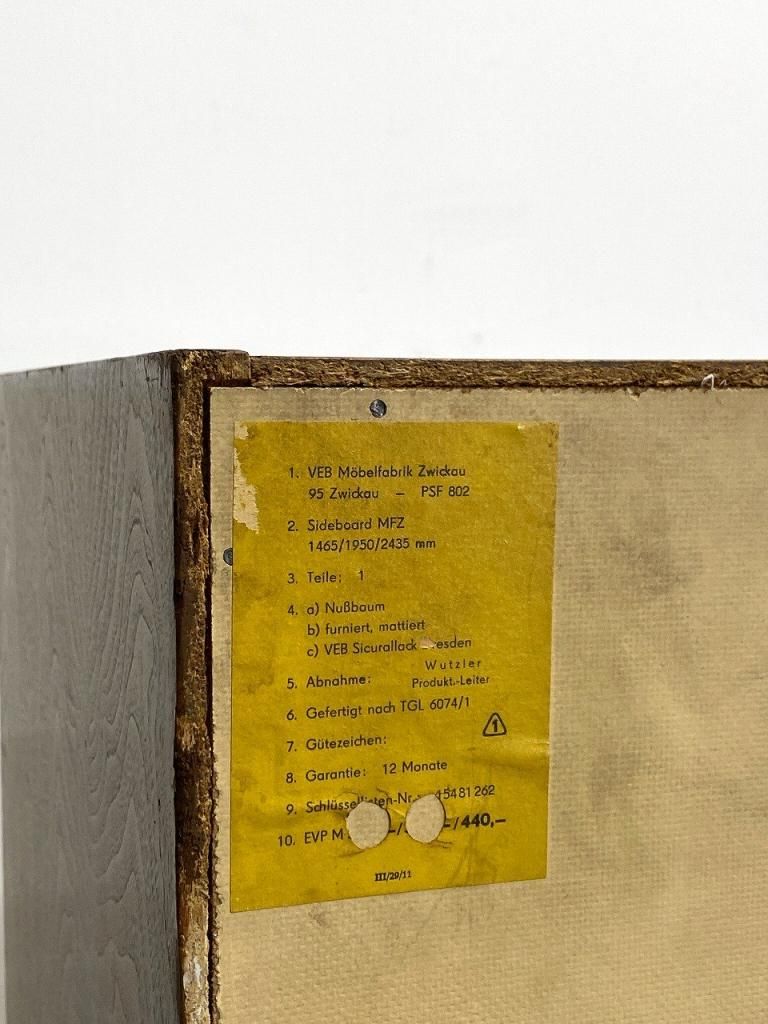 1. VEB Möbelfabrik Zwickau
95 Zwickau — PSF 802
2. Sideboard MFZ
1465/1950/2435 mm
3. Teile: 1
4. a) Nußbaum
b) furniert, mattiert
c) VEB Sicurallack
Wutzler
5. Abnahme: Produkt.-Leiter
6. Gefertigt nach TGL 6074/1
1
7. Gütezeichen:
8. Garantie: 12 Monate
9. 45481262
10. EVP M /440,–
III/29/11